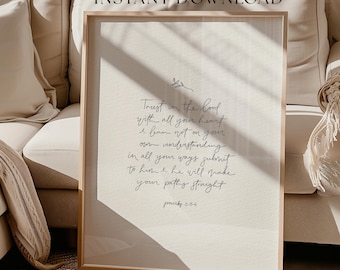 INSTANT DOWNLOAD
Trust in the Lord
with all your heart
& lean not on your
own understanding
in all your ways submit
to him & he will make
your paths straight
proverbs 3:5-6